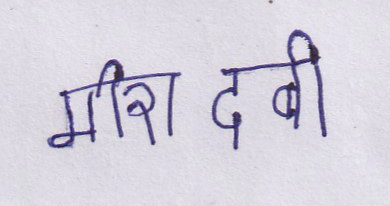 मीरा दवी